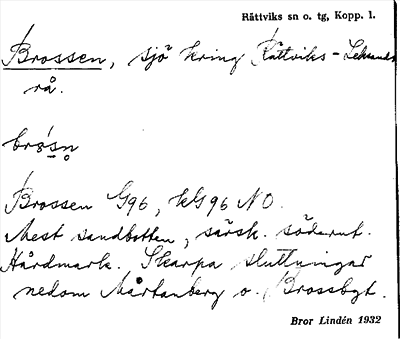 Rättviks sn o. tg, Kopp. l.
Brossen, sjö kring Rättviks-Leksands
rå.
Brossen G96, kG96 NO.
Mest sandbotten, särsk. söderut.
Hårdmark. Skarpa sluttningar
nedom Mårtanberg o. Brossbyt.
Bror Lindén 1932